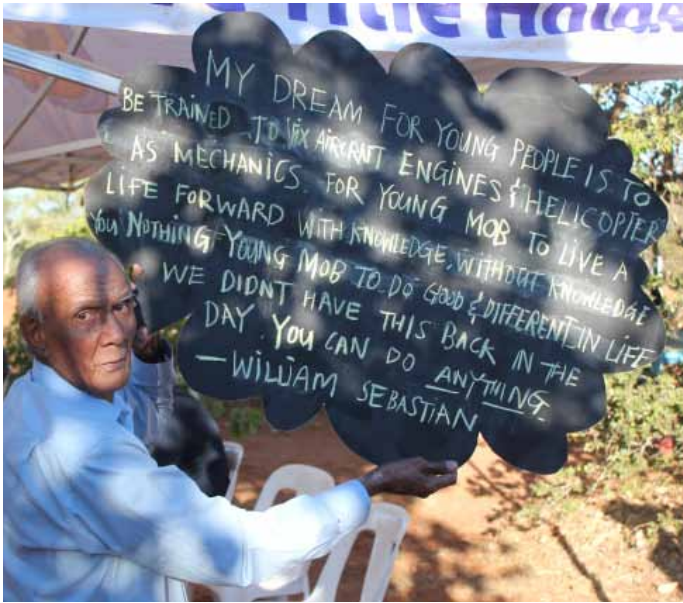 Title Holde
MY DREAM FOR YOUNG PEOPLE IS TO
BE TRAINED TO FIX AIRCRAFT ENGINES & HELICOPTER
AS MECHANICS. FOR YOUNG MOB TO LIVE A
LIFE FORWARD WITH KNOWLEDGE, WITHOUT KNOWLEDGE
YOU NOTHING YOUNG MOB TO DO GOOD & DIFFERENT IN LIFE
WE DIDNT HAVE THIS BACK IN THE
DAY. YOU CAN DO ANYTHING.
— WILLIAM SEBASTIAN